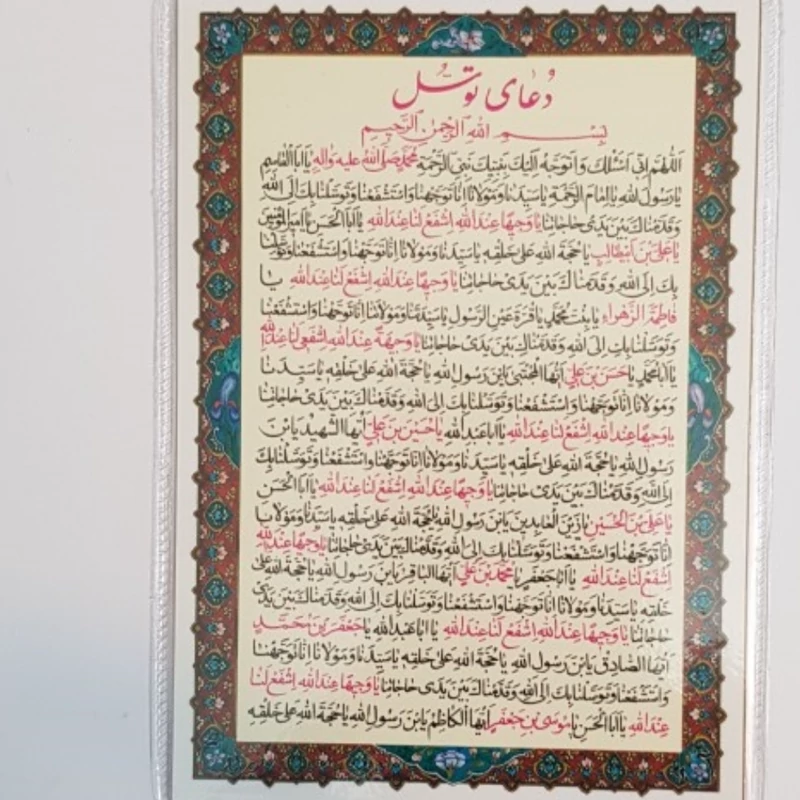 دعای توسل
بِسْمِ اللهِ الرَّحْمنِ الرَّحیمِ
اَللّهُمَّ اِنّی اَسْئَلُكَ وَ اَتَوَجَّهُ اِلَیْكَ بِنَبِیِّكَ نَبِیِّ الرَّحْمَةِ مُحَمَّدٍ صَلَّی اللهُ عَلَیْهِ وَ الِهِ یا اَبَا الْقاسِمِ
یا رَسُولَ اللهِ یا اِمامَ الرَّحْمَةِ یا سَیِّدَنا وَ مَوْلانا اِنّا تَوَجَّهْنا وَ اسْتَشْفَعْنا وَ تَوَسَّلْنا بِكَ اِلَی اللهِ
وَ قَدَّمْناكَ بَیْنَ یَدَیْ حاجاتِنا یا وَجیهًا عِنْدَ اللهِ اِشْفَعْ لَنا عِنْدَ اللهِ یا اَبَا الْحَسَنِ یا اَمیرَ الْمُؤْمِنینَ
یا عَلِیَّ بْنَ اَبیطالِبٍ یا حُجَّةَ اللهِ عَلی خَلْقِهِ یا سَیِّدَنا وَ مَوْلانا اِنّا تَوَجَّهْنا وَ اسْتَشْفَعْنا وَ تَوَسَّلْنا
بِكَ اِلَی اللهِ وَ قَدَّمْناكَ بَیْنَ یَدَیْ حاجاتِنا یا وَجیهًا عِنْدَ اللهِ اِشْفَعْ لَنا عِنْدَ اللهِ یا
فاطِمَةَ الزَّهْراءِ یا بِنْتَ مُحَمَّدٍ یا قُرَّةَ عَیْنِ الرَّسُولِ یا سَیِّدَتَنا وَ مَوْلاتَنا اِنّا تَوَجَّهْنا وَ اسْتَشْفَعْنا
وَ تَوَسَّلْنا بِكِ اِلَی اللهِ وَ قَدَّمْناكِ بَیْنَ یَدَیْ حاجاتِنا یا وَجیهَةً عِنْدَ اللهِ اِشْفَعی لَنا عِنْدَ اللهِ
یا اَبا مُحَمَّدٍ یا حَسَنَ بْنَ عَلِیٍّ اَیُّهَا الْمُجْتَبی یَا بْنَ رَسُولِ اللهِ یا حُجَّةَ اللهِ عَلی خَلْقِهِ یا سَیِّدَنا
وَ مَوْلانا اِنّا تَوَجَّهْنا وَ اسْتَشْفَعْنا وَ تَوَسَّلْنا بِكَ اِلَی اللهِ وَ قَدَّمْناكَ بَیْنَ یَدَیْ حاجاتِنا
یا وَجیهًا عِنْدَ اللهِ اِشْفَعْ لَنا عِنْدَ اللهِ یا اَبا عَبْدِ اللهِ یا حُسَیْنَ بْنَ عَلِیٍّ اَیُّهَا الشَّهیدُ یَا بْنَ
رَسُولِ اللهِ یا حُجَّةَ اللهِ عَلی خَلْقِهِ یا سَیِّدَنا وَ مَوْلانا اِنّا تَوَجَّهْنا وَ اسْتَشْفَعْنا وَ تَوَسَّلْنا بِكَ
اِلَی اللهِ وَ قَدَّمْناكَ بَیْنَ یَدَیْ حاجاتِنا یا وَجیهًا عِنْدَ اللهِ اِشْفَعْ لَنا عِنْدَ اللهِ یا اَبَا الْحَسَنِ
یا عَلِیَّ بْنَ الْحُسَیْنِ یا زَیْنَ الْعابِدینَ یَا بْنَ رَسُولِ اللهِ یا حُجَّةَ اللهِ عَلی خَلْقِهِ یا سَیِّدَنا وَ مَوْلانا
اِنّا تَوَجَّهْنا وَ اسْتَشْفَعْنا وَ تَوَسَّلْنا بِكَ اِلَی اللهِ وَ قَدَّمْناكَ بَیْنَ یَدَیْ حاجاتِنا یا وَجیهًا عِنْدَ اللهِ
اِشْفَعْ لَنا عِنْدَ اللهِ یا اَبا جَعْفَرٍ یا مُحَمَّدَ بْنَ عَلِیٍّ اَیُّهَا الْباقِرُ یَا بْنَ رَسُولِ اللهِ یا حُجَّةَ اللهِ عَلی
خَلْقِهِ یا سَیِّدَنا وَ مَوْلانا اِنّا تَوَجَّهْنا وَ اسْتَشْفَعْنا وَ تَوَسَّلْنا بِكَ اِلَی اللهِ وَ قَدَّمْناكَ بَیْنَ یَدَیْ
حاجاتِنا یا وَجیهًا عِنْدَ اللهِ اِشْفَعْ لَنا عِنْدَ اللهِ یا اَبا عَبْدِ اللهِ یا جَعْفَرَ بْنَ مُحَمَّدٍ
اَیُّهَا الصّادِقُ یَا بْنَ رَسُولِ اللهِ یا حُجَّةَ اللهِ عَلی خَلْقِهِ یا سَیِّدَنا وَ مَوْلانا اِنّا تَوَجَّهْنا
وَ اسْتَشْفَعْنا وَ تَوَسَّلْنا بِكَ اِلَی اللهِ وَ قَدَّمْناكَ بَیْنَ یَدَیْ حاجاتِنا یا وَجیهًا عِنْدَ اللهِ اِشْفَعْ لَنا
عِنْدَ اللهِ یا اَبَا الْحَسَنِ یا مُوسَی بْنَ جَعْفَرٍ اَیُّهَا الْكاظِمُ یَا بْنَ رَسُولِ اللهِ یا حُجَّةَ اللهِ عَلی خَلْقِهِ